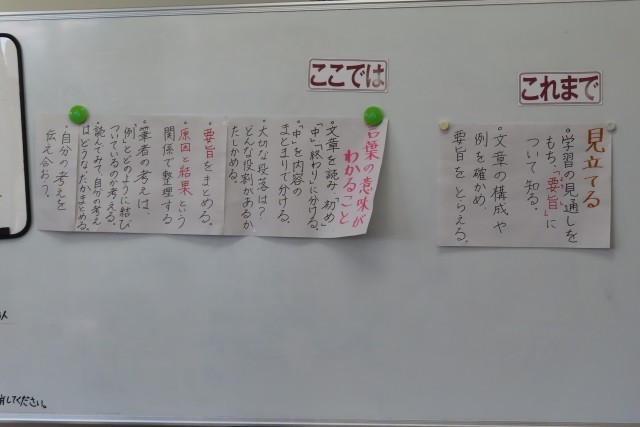 これまで
見立てる
・学習の見通しを
もち、「要旨」に
ついて知る。
・文章の構成や
例を確かめ、
要旨をとらえる。
ここでは
言葉の意味が
わかること
・文章を読み「初め」
「中」「終わり」に分ける。
・「中」を内容の
まとまりで分ける。
・大切な段落は?
どんな役割があるか
たしかめる。
・要旨をまとめる。
・原因と結果という
関係で整理する
・筆者の考えは、
例とどのように結び
ついているのか考える。
・読んでみて、自分の考え
はどうなったかまとめる。
・自分の考えを
伝え合おう。
消してください。